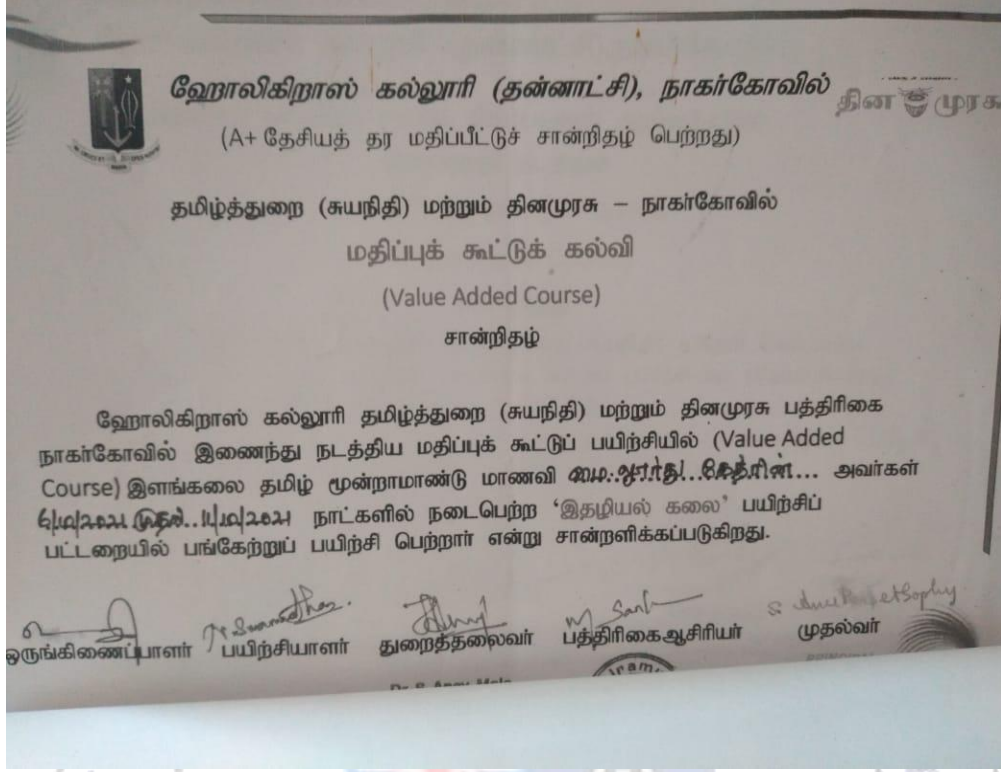 ஹோலிகிறாஸ் கல்லூரி (தன்னாட்சி), நாகர்கோவில்
தின முரசு
(A+ தேசியத் தர மதிப்பீட்டுச் சான்றிதழ் பெற்றது)
தமிழ்த்துறை (சுயநிதி) மற்றும் தினமுரசு – நாகர்கோவில்
மதிப்புக் கூட்டுக் கல்வி
(Value Added Course)
சான்றிதழ்
ஹோலிகிறாஸ் கல்லூரி தமிழ்த்துறை (சுயநிதி) மற்றும் தினமுரசு பத்திரிகை
நாகர்கோவில் இணைந்து நடத்திய மதிப்புக் கூட்டுப் பயிற்சியில் (Value Added
Course) இளங்கலை தமிழ் மூன்றாமாண்டு மாணவி கேத்ரின்... அவர்கள்
6/10/2021 முதல்..11/10/2021 நாட்களில் நடைபெற்ற 'இதழியல் கலை' பயிற்சிப்
பட்டறையில் பங்கேற்றுப் பயிற்சி பெற்றார் என்று சான்றளிக்கப்படுகிறது.
ஒருங்கிணைப்பாளர் பயிற்சியாளர் துறைத்தலைவர் பத்திரிகைஆசிரியர் முதல்வர்